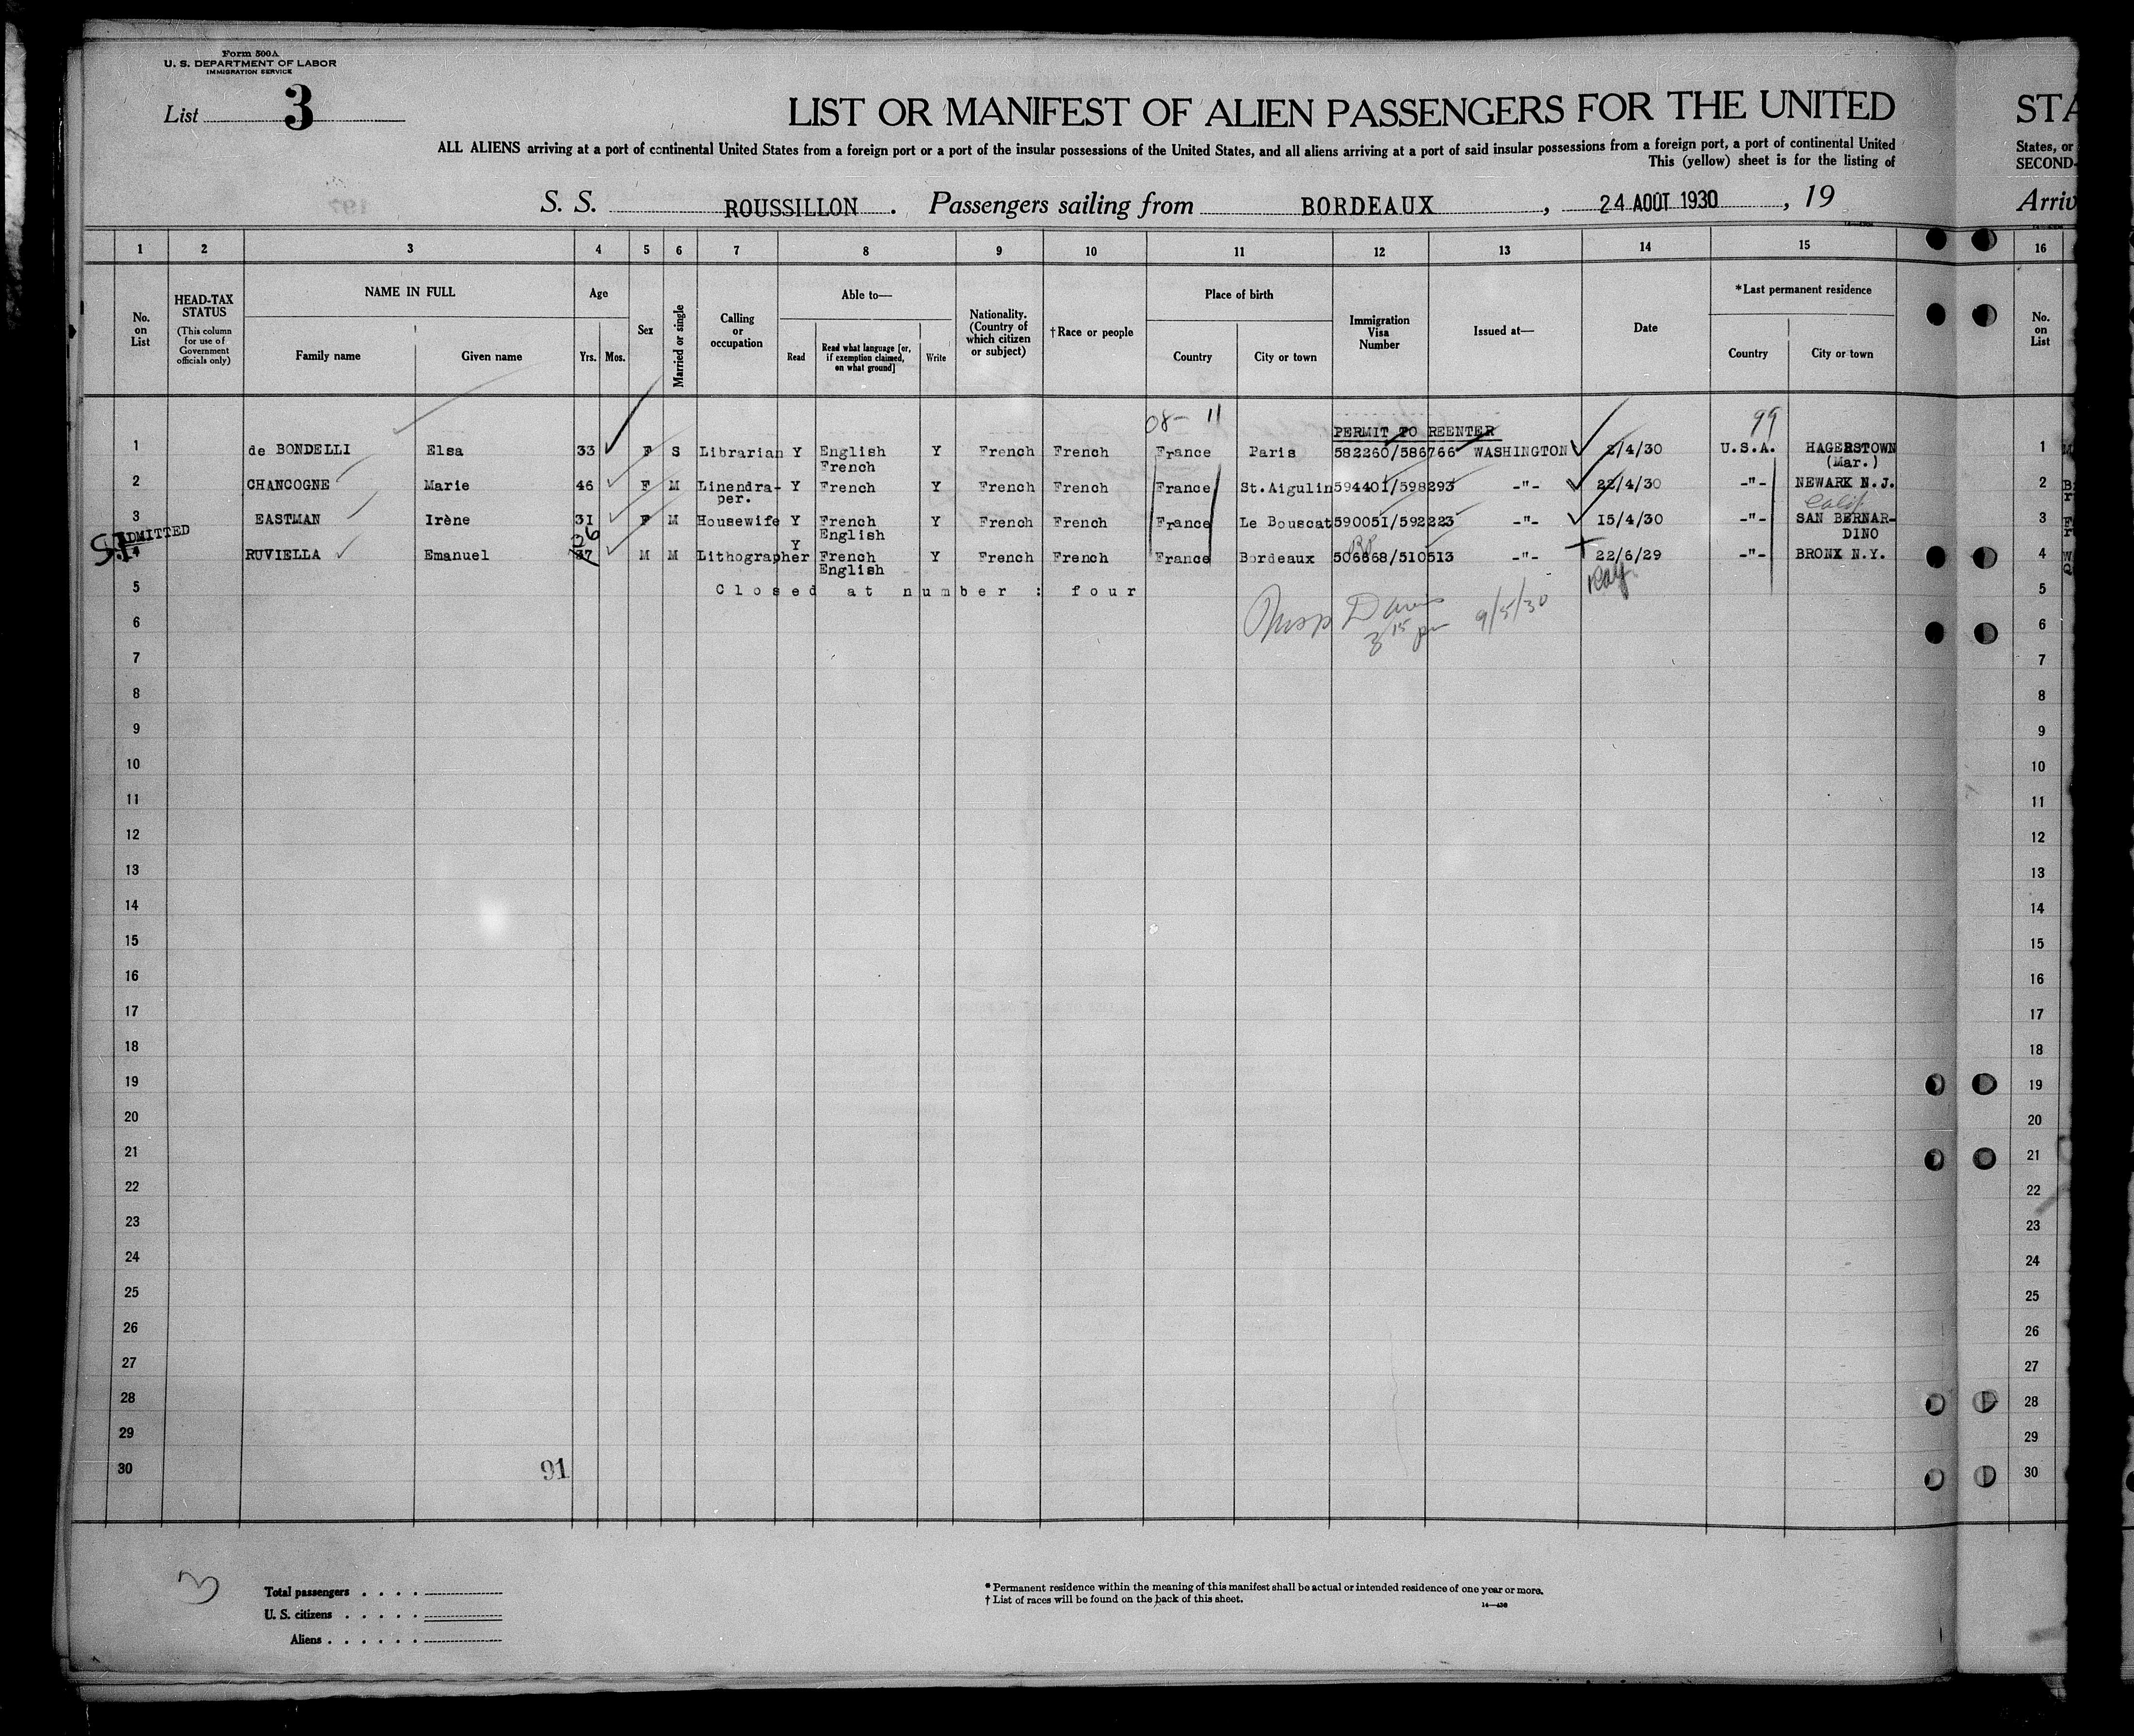 Form 500A
U. S. DEPARTMENT OF LABOR
IMMIGRATION SERVICE
List 3
LIST OR MANIFEST OF ALIEN PASSENGERS FOR THE UNITED STA
ALL ALIENS arriving at a port of continental United States from a foreign port or a port of the insular possessions of the United States, and all aliens arriving at a port of said insular possessions from a foreign port, a port of continental United States, or
This (yellow) sheet is for the listing of SECOND-
S. S. ROUSSILLON . Passengers sailing from BORDEAUX , 24 AOÛT 1930 , 19 Arriv
1 2 3 4 5 6 7 8 9 10 11 12 13 14 15 16
No. on List
HEAD-TAX STATUS
(This column for use of Government officials only)
NAME IN FULL
Family name Given name
Age
Yrs. Mos.
Sex
Married or single
Calling or occupation
Able to—
Read
Read what language [or, if exemption claimed, on what ground]
Write
Nationality. (Country of which citizen or subject)
†Race or people
Place of birth
Country City or town
Immigration Visa Number
Issued at—
Date
*Last permanent residence
Country City or town
No. on List
08- 11 99
PERMIT TO REENTER
1 de BONDELLI Elsa 33 F S Librarian Y English Y French French France Paris 582260/586766 WASHINGTON 2/4/30 U.S.A. HAGERSTOWN 1
French (Mar.)
2 CHANCOGNE Marie 46 F M Linendra- Y French Y French French France St.Aigulin 594401/598293 -"- 22/4/30 -"- NEWARK N.J. 2
per. Calif
3 EASTMAN Irène 31 F M Housewife Y French Y French French France Le Bouscat 590051/592223 -"- 15/4/30 -"- SAN BERNAR- 3
English DINO
ADMITTED
S.I.
4 RUVIELLA Emanuel 37 M M Lithographer Y French Y French French France Bordeaux 506668/510513 -"- 22/6/29 -"- BRONX N.Y. 4
English
5 Closed at number : four 5
Insp 9/5/30
3 15 pm
6 6
7 7
8 8
9 9
10 10
11 11
12 12
13 13
14 14
15 15
16 16
17 17
18 18
19 19
20 20
21 21
22 22
23 23
24 24
25 25
26 26
27 27
28 28
29 29
30 91 30
3
Total passengers . . . .
U. S. citizens . . . . .
Aliens . . . . . .
* Permanent residence within the meaning of this manifest shall be actual or intended residence of one year or more.
† List of races will be found on the back of this sheet.